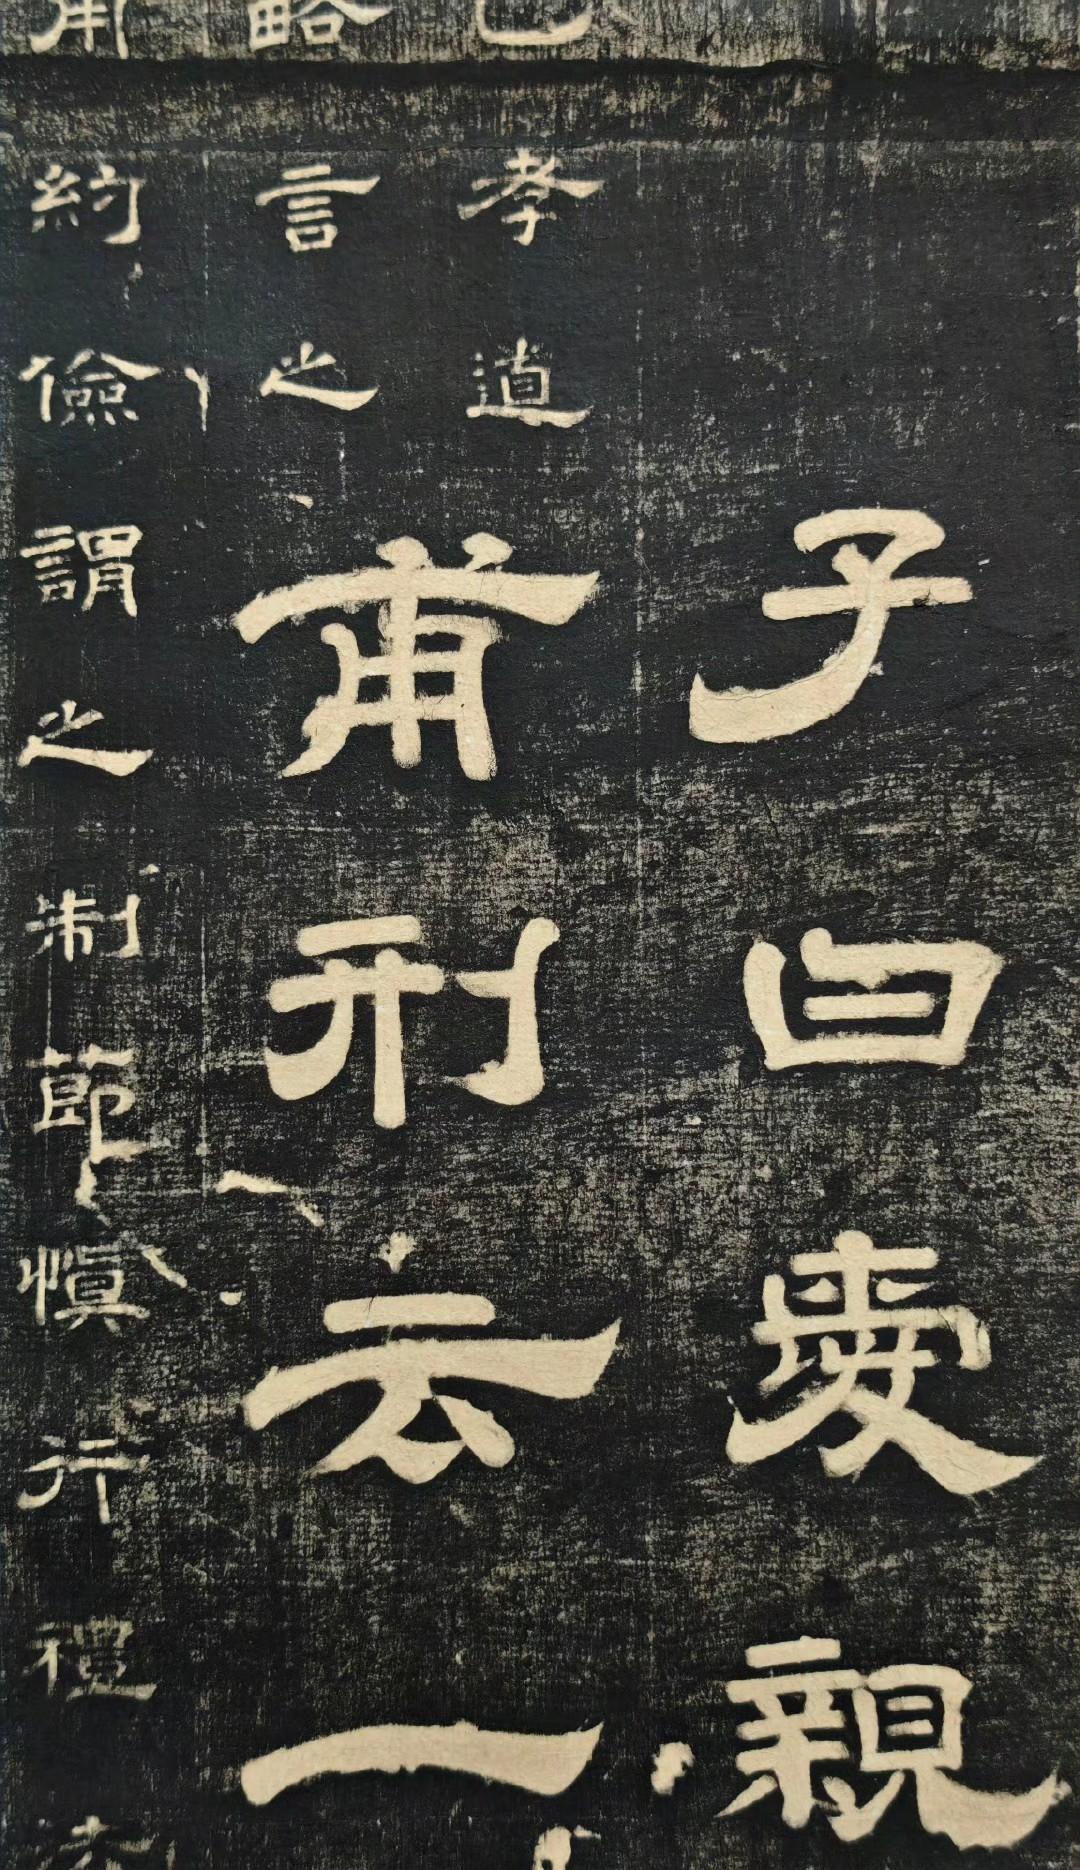 子曰愛親
也孝道
略言之
甫刑云一
用約儉謂之制節慎行禮法